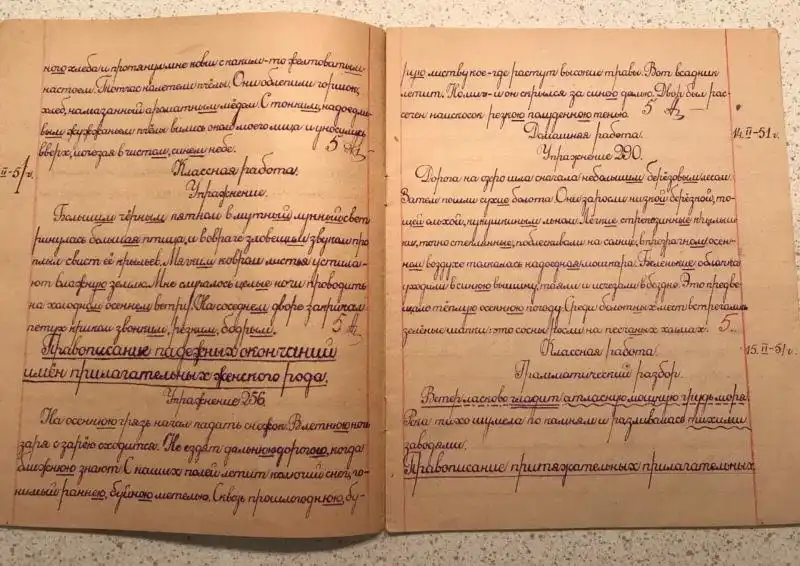 ного хлеба и протянул мне ковш с каким-то желтоватым
настоем. Тотчас налетели пчёлы. Они облепили горшок,
хлеб, намазанный ароматным мёдом. С тонким, надоедли-
вым жужжаньем пчёлы вились около моего лица и уносились
вверх, исчезая в чистом, синем небе. 5
II-51 г.
Классная работа.
Упражнение.
Большим чёрным пятном в мутный лунный свет
ринулась большая птица, и в овраге зловещим звуком про
плыл свист её крыльев. Мягким ковром листья устилa-
ют влажную землю. Мне случалось целые ночи проводить
на холодном осеннем ветру. На соседнем дворе закричал
петух криком звонким, резким, бодрым. 5
Правописание падежных окончаний
имён прилагательных женского рода.
Упражнение 256.
На осеннюю грязь начал падать снежок. В летнюю ночь
заря с зарёю сходится. Не ездят дальнею дорогою, когда
ближнюю знают. С наших полей летит колючий снег, го-
нимый раннею, буйною метелью. Сквозь прошлогоднюю, бу-
рую листву кое-где растут высокие травы. Вот всадник
летит. Помиг и он скрылся за синею далью. Двор был рас-
сечен наискосок резкою полуденною тенью. 5
Домашняя работа. 14.II-51 г.
Упражнение 290.
Дорога на озеро шла сначала небольшим берёзовым лесом.
Затем пошли сухие болота. Они заросли низкой берёзкой, то-
щей ольхой, кукушкиным льном. Лёгкие стрекозиные крылыш-
ки, точно стеклянные, поблескивали на солнце, в прозрачном осен-
нем воздухе толкалась надоедная мошкара. Беленькие облачка
уходили в синюю вышину, таяли и исчезали в бездне. Это предве-
щало тёплую осеннюю погоду. Среди болотных мест встречались
зелёные шапки: это сосны росли на песчаных холмах. 5
Классная работа. 15.II-51 г.
Грамматический разбор.
Ветер ласково гладит атласную мощную грудь моря.
Река тихо шумела по камням и разливалась тихими
заводями.
Правописание притяжательных прилагательных